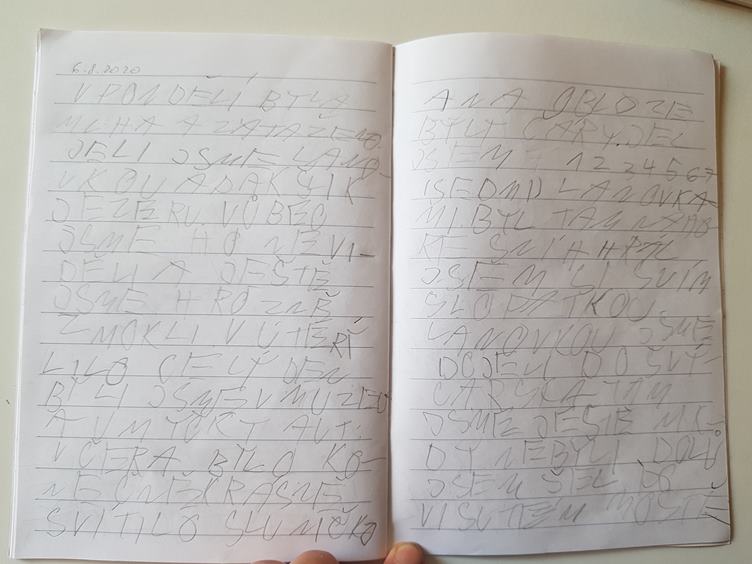 6.8.2020
V PONDĚLÍ BYLA
MLHA A ZATAŽENO.
JELI JSME LANO-
VKOU A PAK ŠLI K
JEZERU VŮBEC
JSME HO NEVI-
DĚLI A JEŠTĚ
JSME HROZNĚ
ZMOKLI. V ÚTERÍ
LILO CELÝ DEN
BYLI JSME V MUZEU
A V MYČKY AUT.
VČERA BYLO KO-
NEČNĚ KRÁSNĚ
SVÍTILO SLUNÍČKO
A NA OBLOZE
BYLY ČÁRY. JEL
JSEM 1 2 3 4 5 6 7
(SEDMI) LANOVKA-
MI BYL TAM NAHO
ŘE SNÍH HRÁL
JSEM SI SVÍM
SLOPATKOU.
LANOVKOU JSME
DOJELI DO ŠVÝ-
CARSKA TAM
JSME JEŠTĚ NI-
DY NEBYLI. DOLŮ
JSEM ŠEL PO
VISUTÉM MOSTĚ